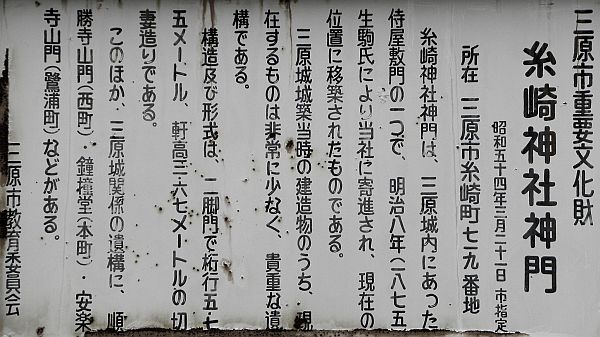 三原市重要文化財
糸崎神社神門
昭和五十四年三月二十一日 市指定
所在 三原市糸崎町七一九番地
糸崎神社神門は、三原城内にあった
侍屋敷門の一つで、明治八年(一八七五
生駒氏により当社に寄進され、現在の
位置に移築されたものである。
三原城城築当時の建造物のうち、現
在するものは非常に少なく、貴重な遺
構である。
構造及び形式は、二脚門で桁行五・七
五メートル、軒高三・六七メートルの切
妻造りである。
このほか、三原城関係の遺構に、順
勝寺山門(西町)・鐘撞堂(本町)・安楽
寺山門(鷺浦町)などがある。
三原市教育委員会